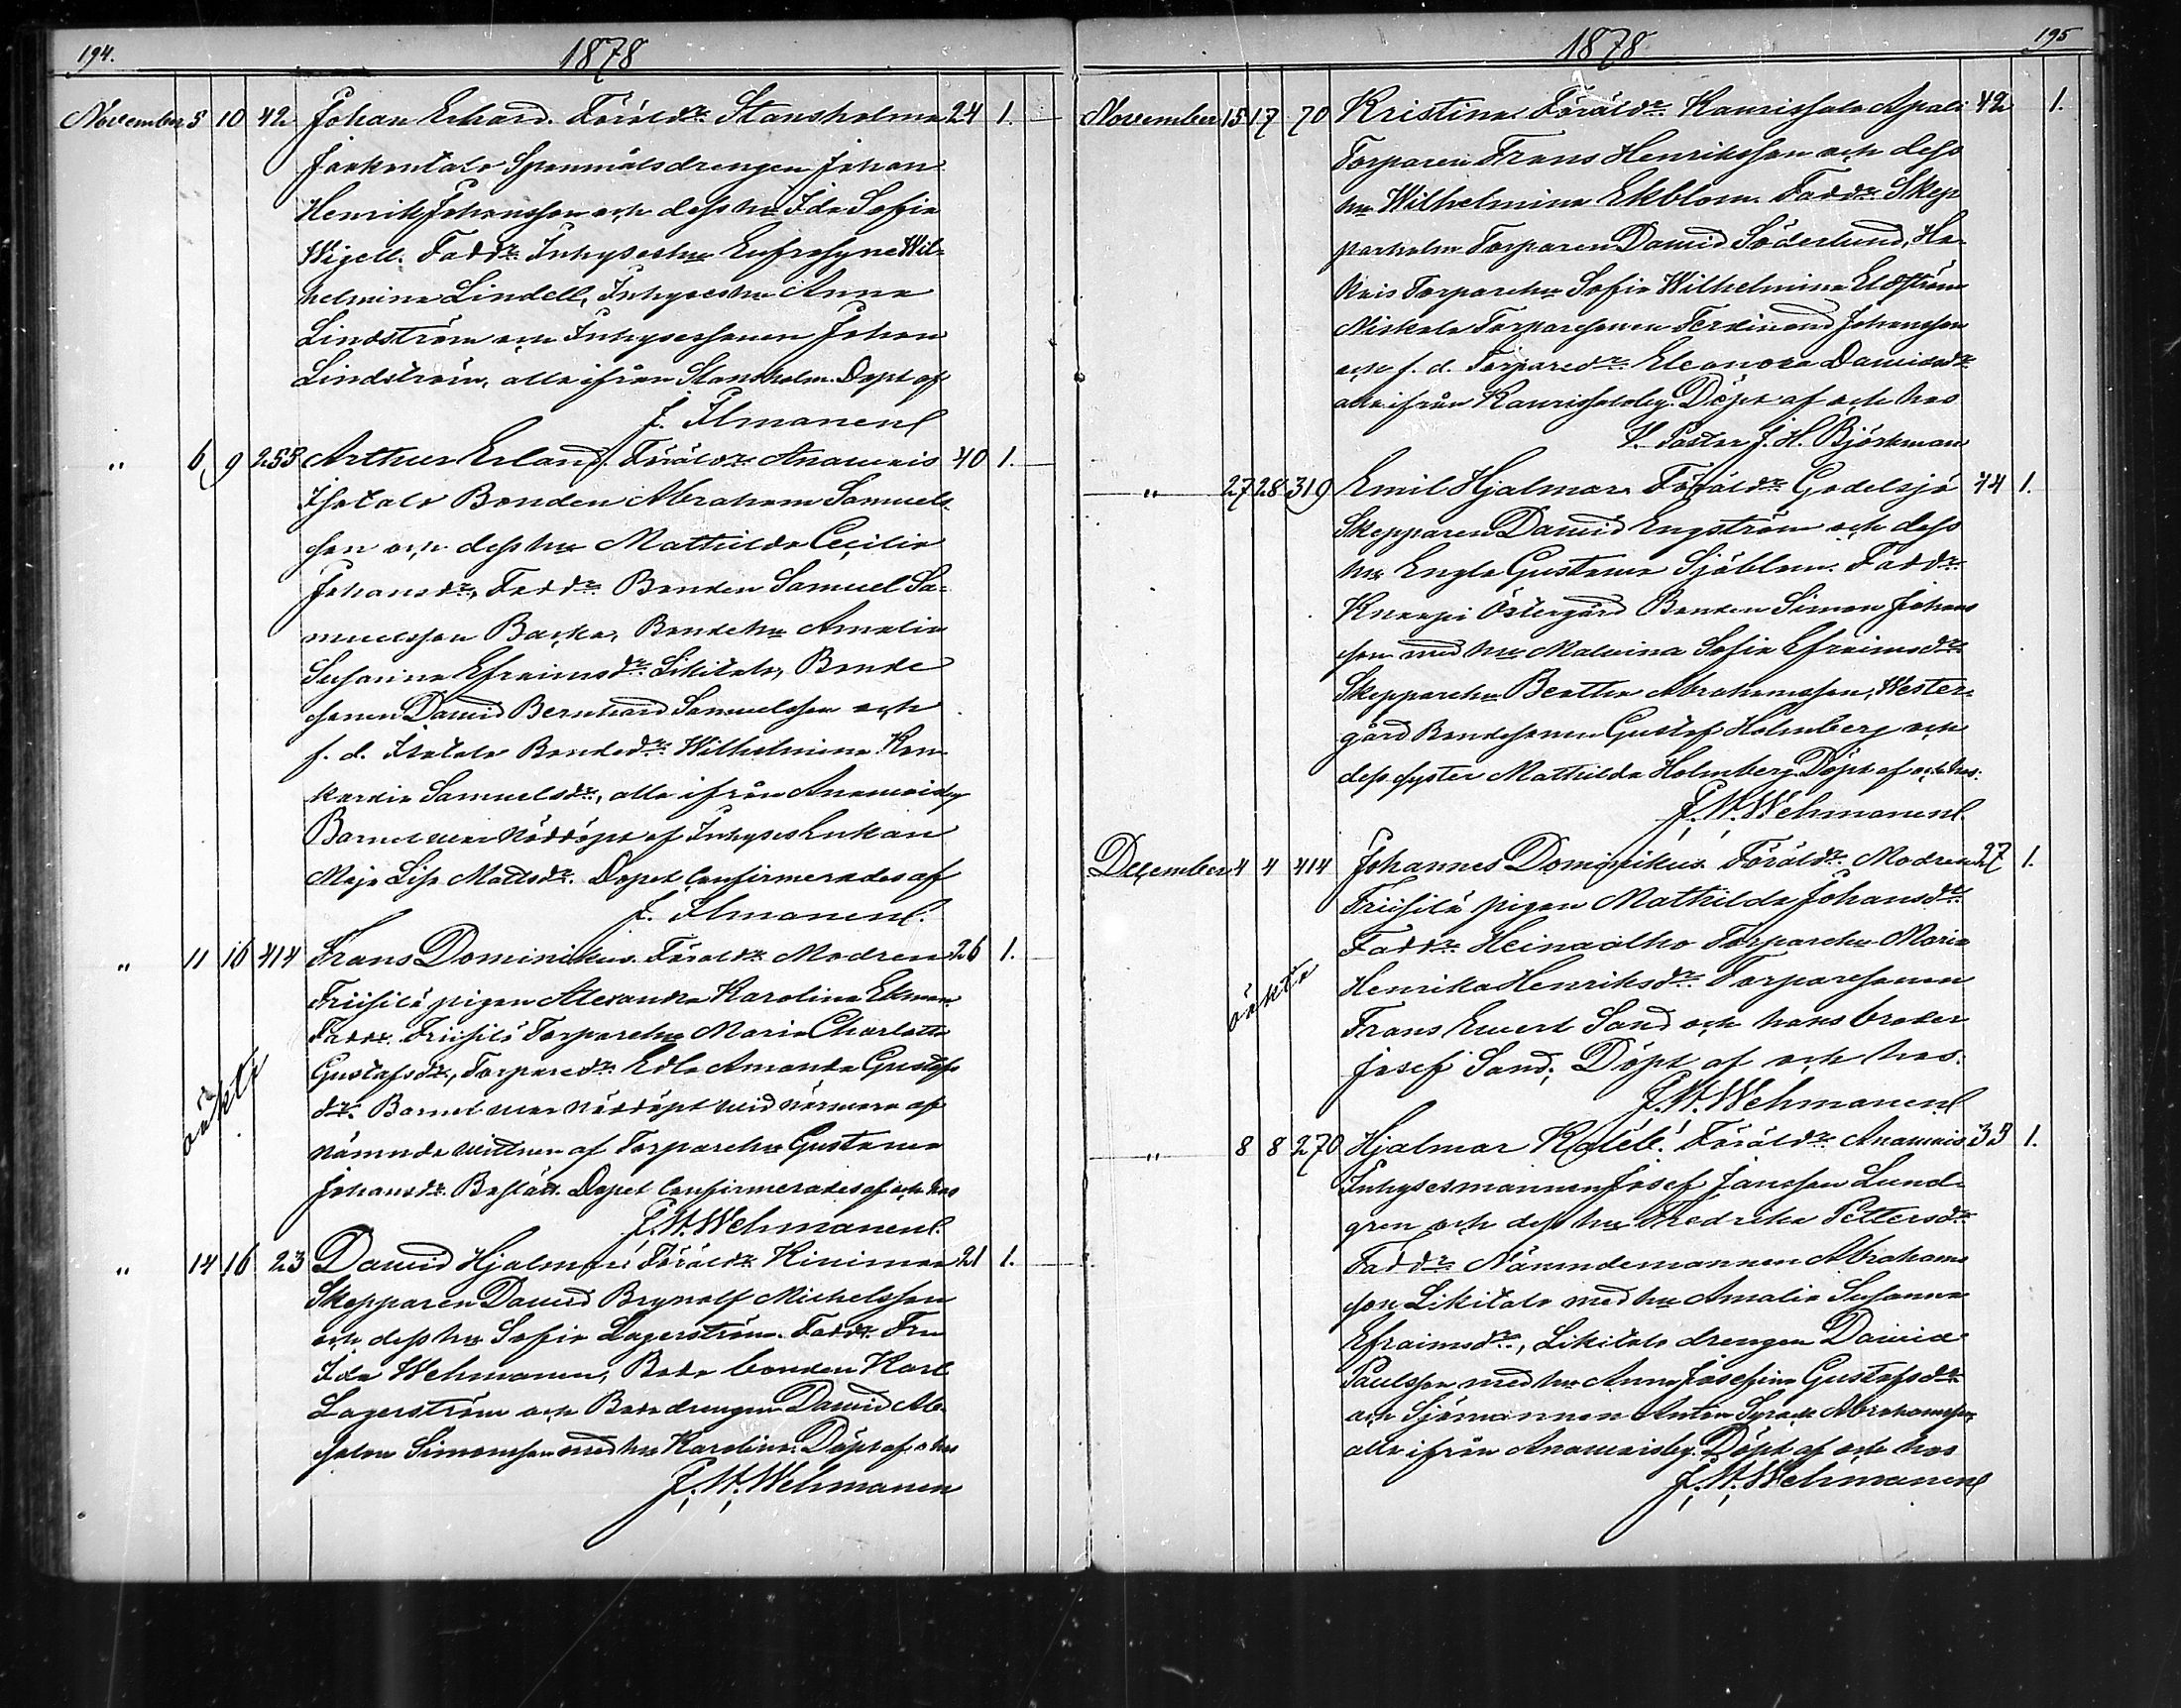 194.
1878
November 5 10 42 Johan Erhard. Föräldr: Stansholma 24 1.
Spanmålsdrengen Johan
Henrik Johansson och dess hu Ida Sofia
Wigell. Faddr: Inhyseshu Eufrosyne Wil-
helmina Lindell, Inhyseshu Anna
Lindström och Inhysessonen Johan
Lindström, alla ifrån Stansholm. Döpt af
J. Ilmanen
" 6 9 255 Arthur Erland. Föräldr: Anawais 40 1.
Isotalo Bonden Abraham Samuels-
son och dess hu Mathilda Cecilia
Johansdr, Faddr: Bonden Samuel Sa-
muelsson Backa, Bondehu Amalia
Susanna Efraimsdr: Likitalo, Bonde
sonen Dawid Bernhard Samuelsson och
f. d. Isotalo Bondedr: Wilhelmina
Samuelsdr, alla ifrån Anawaisby
Barnet war nöddöpt af Inhyses Enkan
Maja Lisa Mattsdr. Dopet Confirmerades af
J. Ilmanen.
" 11 16 414 Frans Dominikus. Föräldr: Modren 26 1.
Friisilä pigan Alexandra Karolina Ekman.
Faddr. Friisilä Torparehu Maria Charlotta
Gustafsdr, Torparedr: Edla Amanda Gustafs
dr. Barnet war nöddöpt wid närwara af
nämnde wittnen af Torparehu Gustawa
Johansdr. Dopet Confirmerades af och hos
oäkta
J. W. Wehmanen.
" 14 16 23 Dawid Hjalmar. Föräldr: Kiinimaa 21 1.
Skepparen Dawid Brynolf Michelsson
och dess hu Sofia Lagerström. Faddr: Fru
Ida Wehmanen, Bonden Karl
Lagerström och drengen Dawid Ab-
salon Simonsson med hu Karolina. Döpt af o hos
J. W. Wehmanen
195
1878
November 15 17 70 Kristina. Föräldr: 42 1.
Torparen Frans Henriksson och dess
hu Wilhelmina Ekblom. Faddr: Skep
parholm Torparen Dawid Söderlund,
Torparehu Sofia Wilhelmina
Torparesonen Ferdinand Johansson
och f. d. Torparedr: Eleonora Dawidsdr
alla ifrån Döpt af och hos
V. Pastor J. H. Björkman
" 27 28 319 Emil Hjalmar. Föräldr: Godelsjö 44 1.
Skepparen Dawid Engström och dess
hu Engla Gustawa Sjöblom. Faddr:
Knaapi Östergård Bonden Simon Johans
son med hu Malwina Sofia Efraimsdr
Skepparehu Beatha Abrahamsson, Wester-
gård Bondesonen Gustaf Holmberg och
dess syster Mathilda Holmberg. Döpt af och hos.
J. W. Wehmanen.
December 4 4 414 Johannes Dominikus. Föräldr: Modren 27 1.
Friisilä pigan Mathilda Johansdr
Faddr: Heinaalho Torparehu Maria
Henrika Henriksdr. Torparesonen
Frans Ewert Sand och hans broder
Josef Sand, Döpt af och hos.
oäkta
J. W. Wehmanen
" 8 8 270 Hjalmar Kaleb. Föräldr: Anawais 35 1.
Inhysesmannen Josef Jansson Lund-
gren och dess hu Fredrika Pettersdr
Faddr: Nämndemannen Abrahams
son Likitalo med hu Amalia Susanna
Efraimsdr, Likitalo drengen Dawid
Paulsson med hu Anna Josefina Gustafsdr
och Sjömannen Anton Syrach Abrahamsson
alla ifrån Anawaisby. Döpt af och hos
J. W. Wehmanen